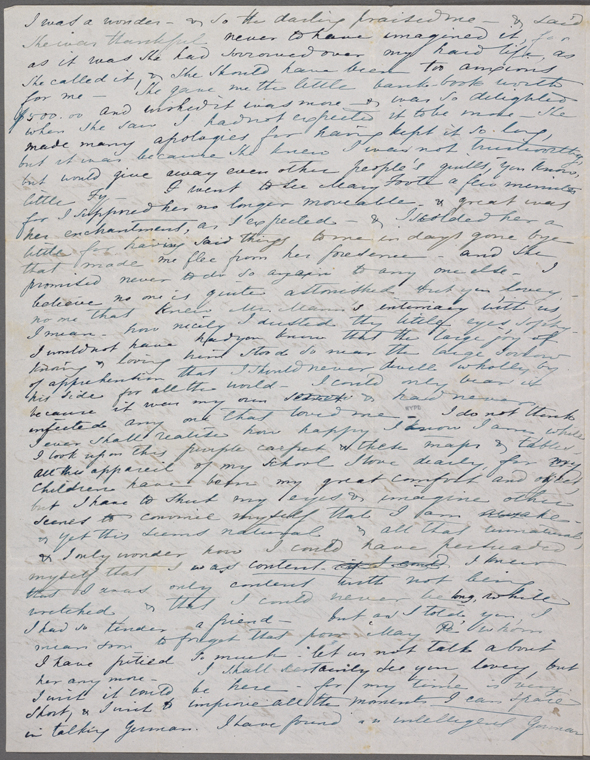 I was a wonder - & so the darling praised me - & said
she was thankful never to have imagined it, for
as it was she had sorrowed over my hard life, as
she called it, & she should have been too anxious
for me - She gave me the little bank-book worth
$500.00 and wished it was more - & was so delighted
when she saw I had not expected it to be more - She
made many apologies for having kept it so long,
but it was because she knew I was not trustworthy
but would give away even other people's quilts, you know,
little Fy - I went to see Mary Foote a few minutes
for I supposed her no longer moveable - & great was
her enchantment, as I expected - & I scolded her a
little for having said things to me in days gone bye
that made me flee from her presence - and she
promised never to do so again to any one else - I
believe no one is quite astonished but you lovey -
no one that knew Mr. Mann's intimacy with us
I mean - how nicely I dusted thy little eyes Sophy -
I would not have had you know that the large joy of
knowing & loving him stood so near the large sorrow
of apprehension that I should never dwell wholly by
his side for all the world - I could only bear it
because it was my own & had never
infected any one that loved me - I do not think
I ever shall realise how happy I know I am, while
I look upon this purple carpet & these maps & tables
all the appareil of my school I love dearly, for my
children have been my great comfort and
but I have to shut my eyes & imagine other
scenes to convince myself that I am awake -
& yet this seems natural & all that unnatural,
& I only wonder how I could have persuaded
myself that I was content. if I could I knew
that I was only content with not being
wretched & that I could never be long, while
I had so tender a friend - but as I told you, I
mean soon to forget that poor Mary P. whom
I have pitied so much - let us not talk about
her any more - I shall certainly see you lovey, but
I wish it could be here - for my time is very
short, & I wish to improve all the moments I can spare
in talking German. I have found an intelligent German